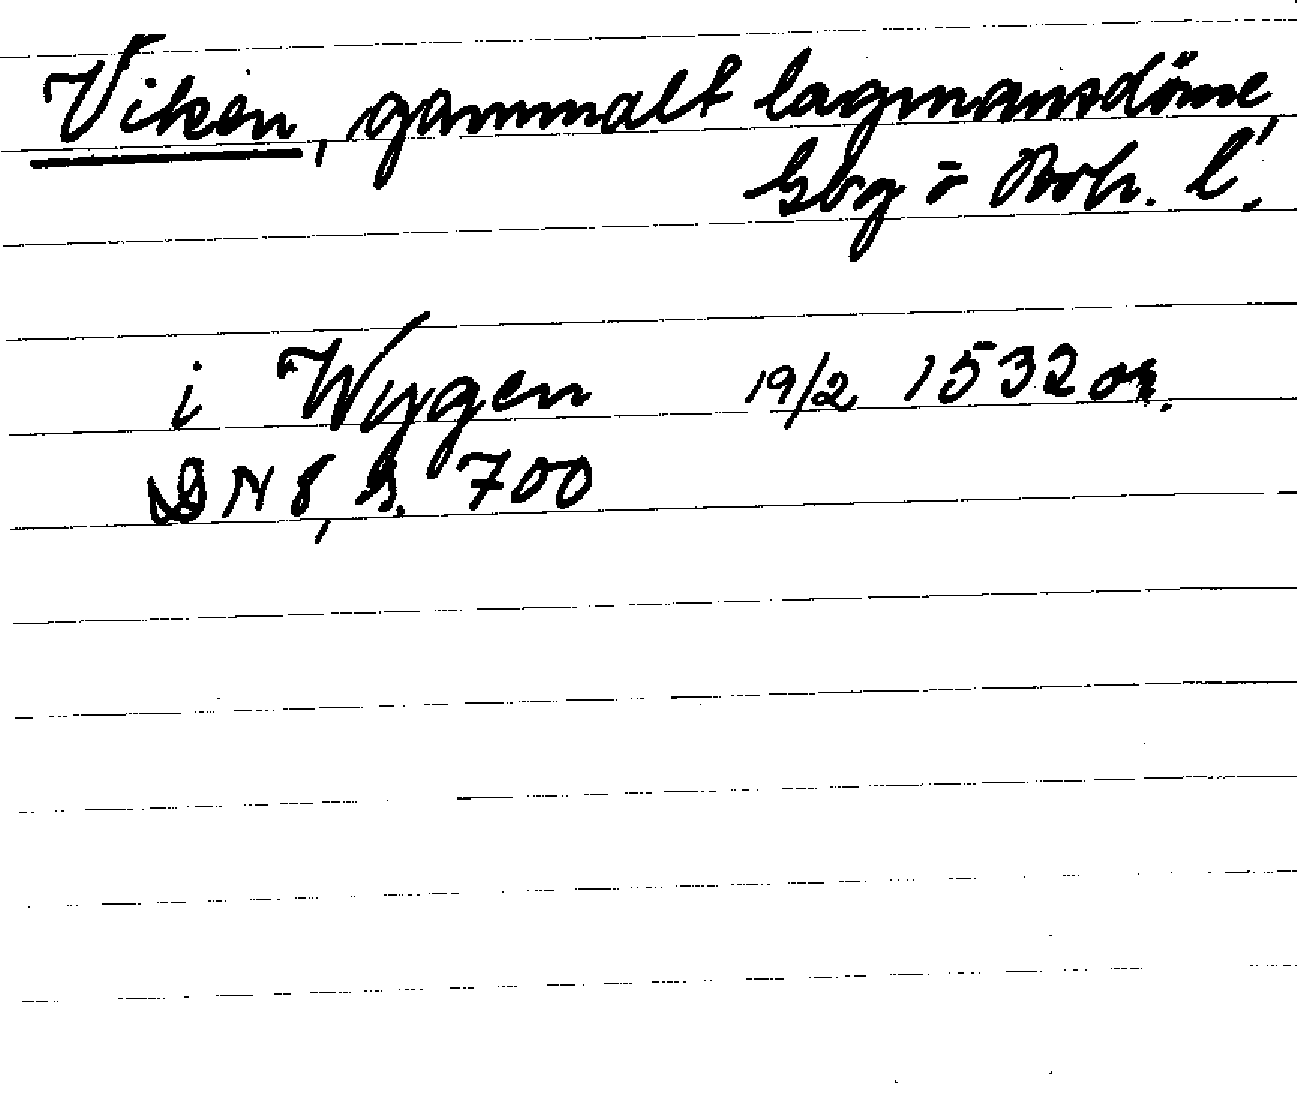 Viken, gammalt lagmansdöme,
Gbg o Boh. l.
i Wygen 19/2 1532 or.
DN 8, s. 700